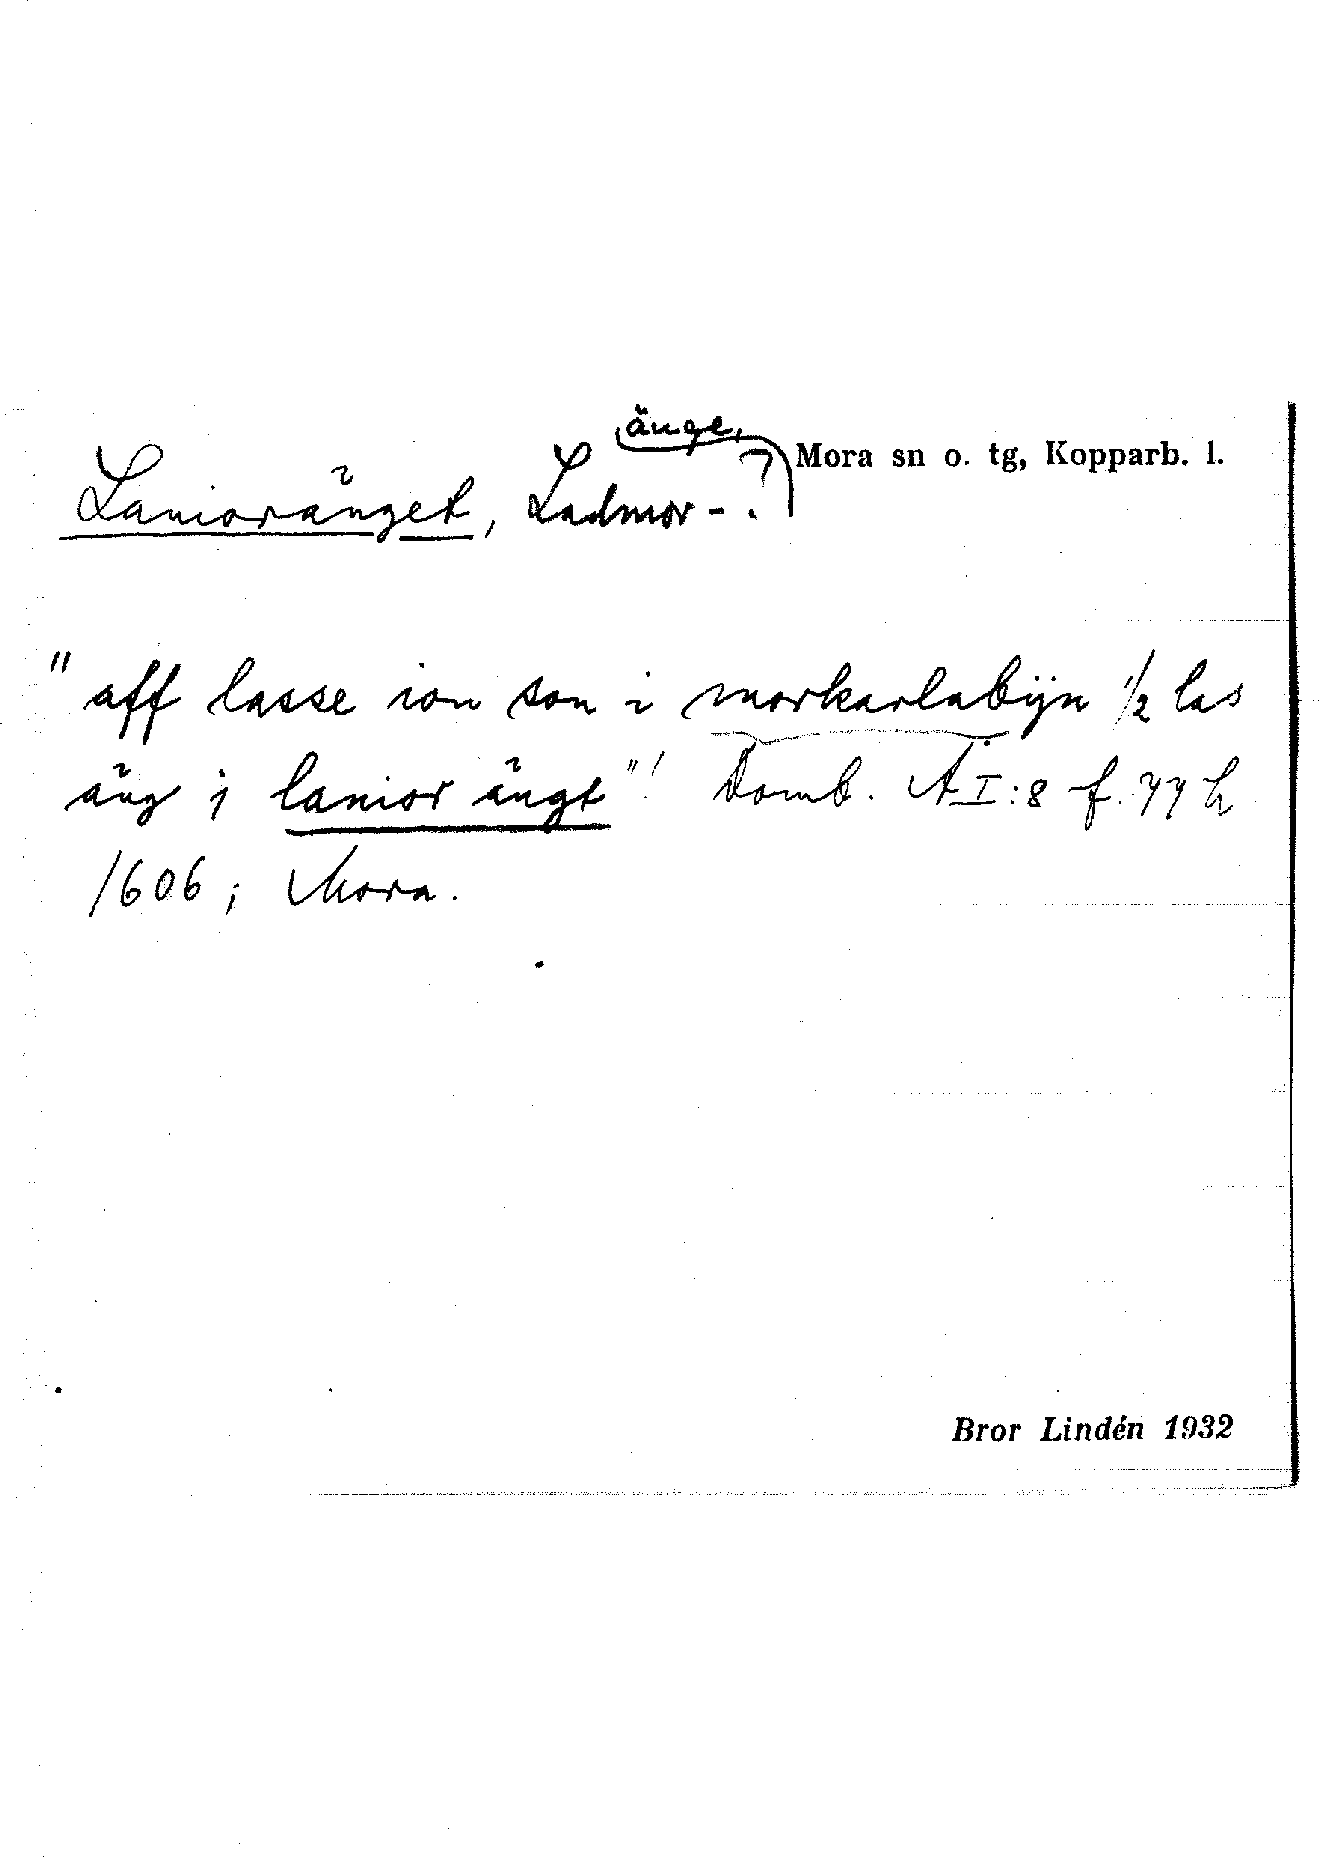 änge,
Mora sn o. tg, Kopparb. l.
Lanioränget, Ladmor-?
"aff lasse ion son i morkarlabijn 1/2 las
äng i lanior ängt"! Domb. AI:8 f. 77
1606; Mora.
Bror Lindén 1932